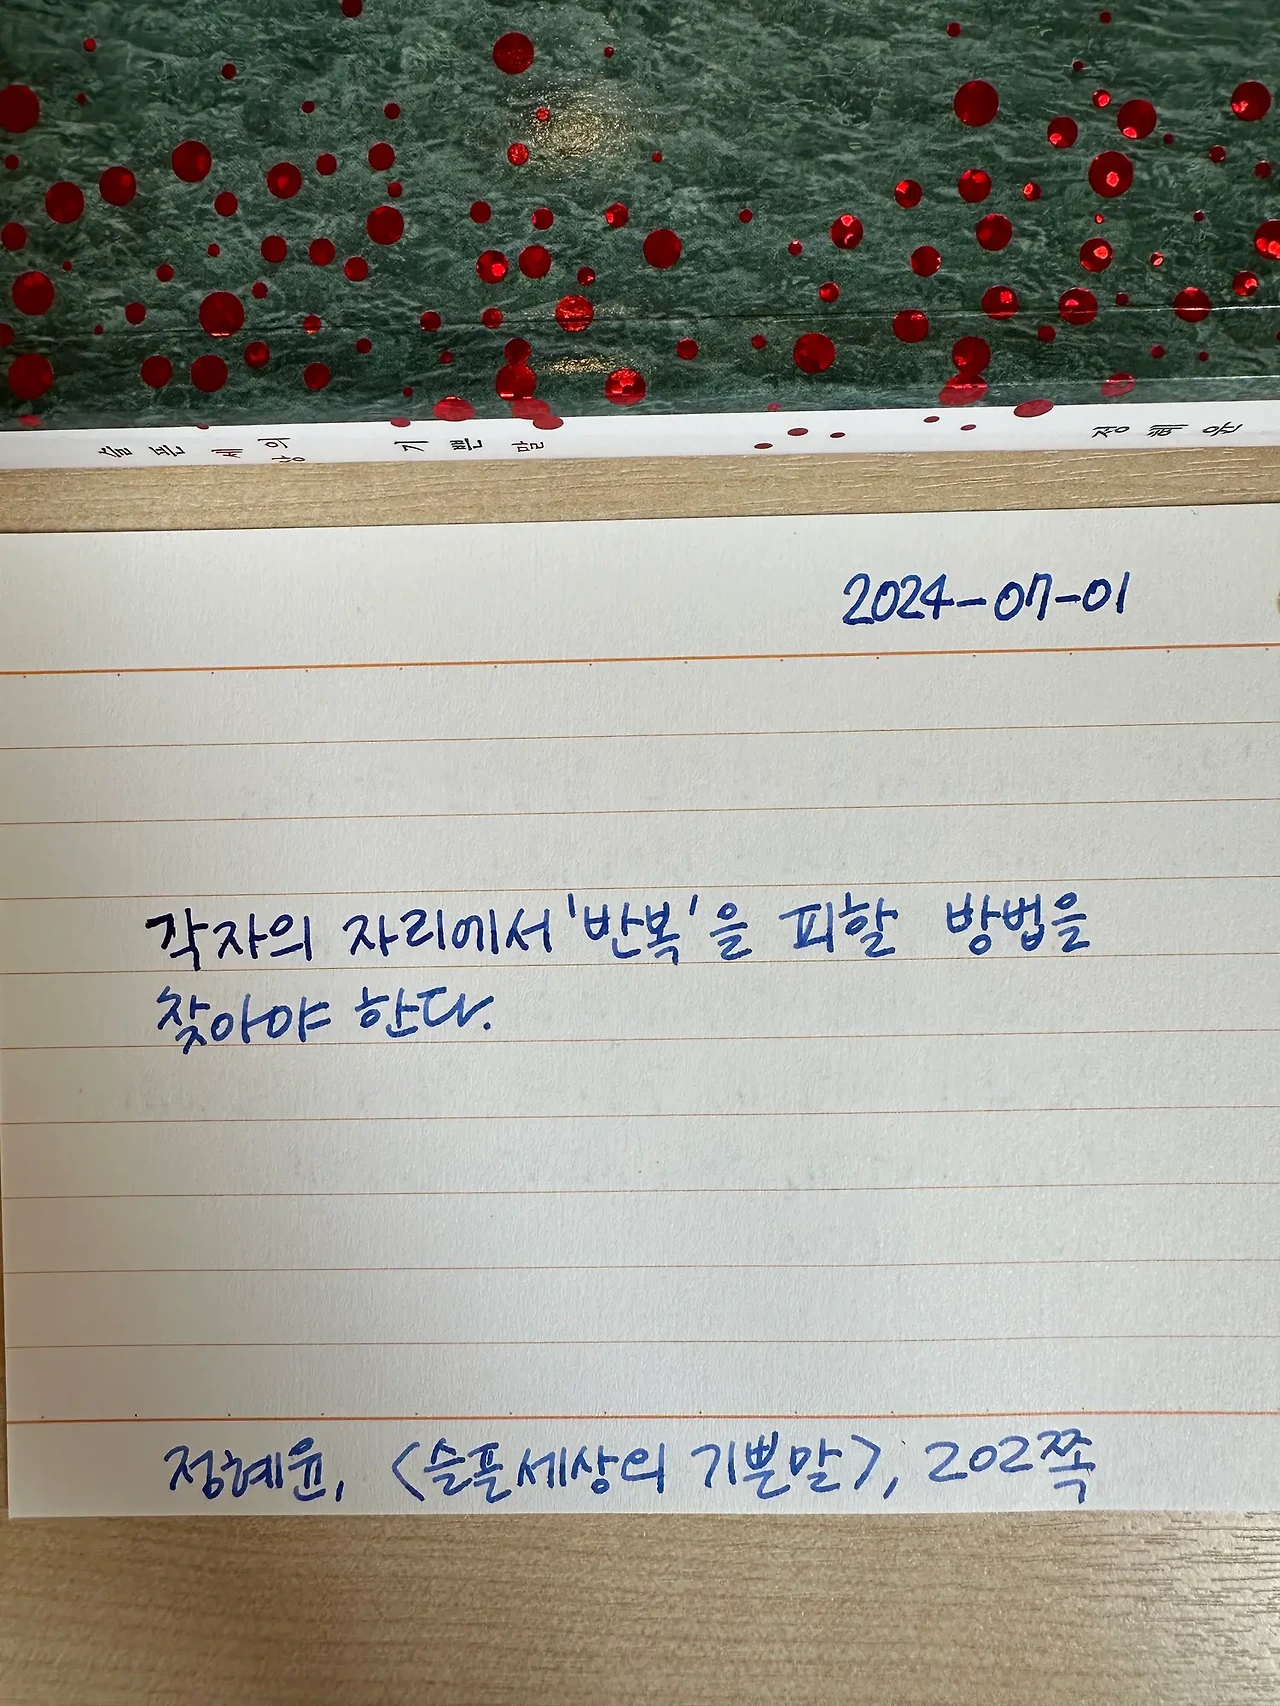 슬픈 세상의 기쁜 말 정혜윤
2024-07-01
각자의 자리에서 '반복'을 피할 방법을
찾아야 한다.
정혜윤, <슬픈세상의 기쁜말>, 202쪽